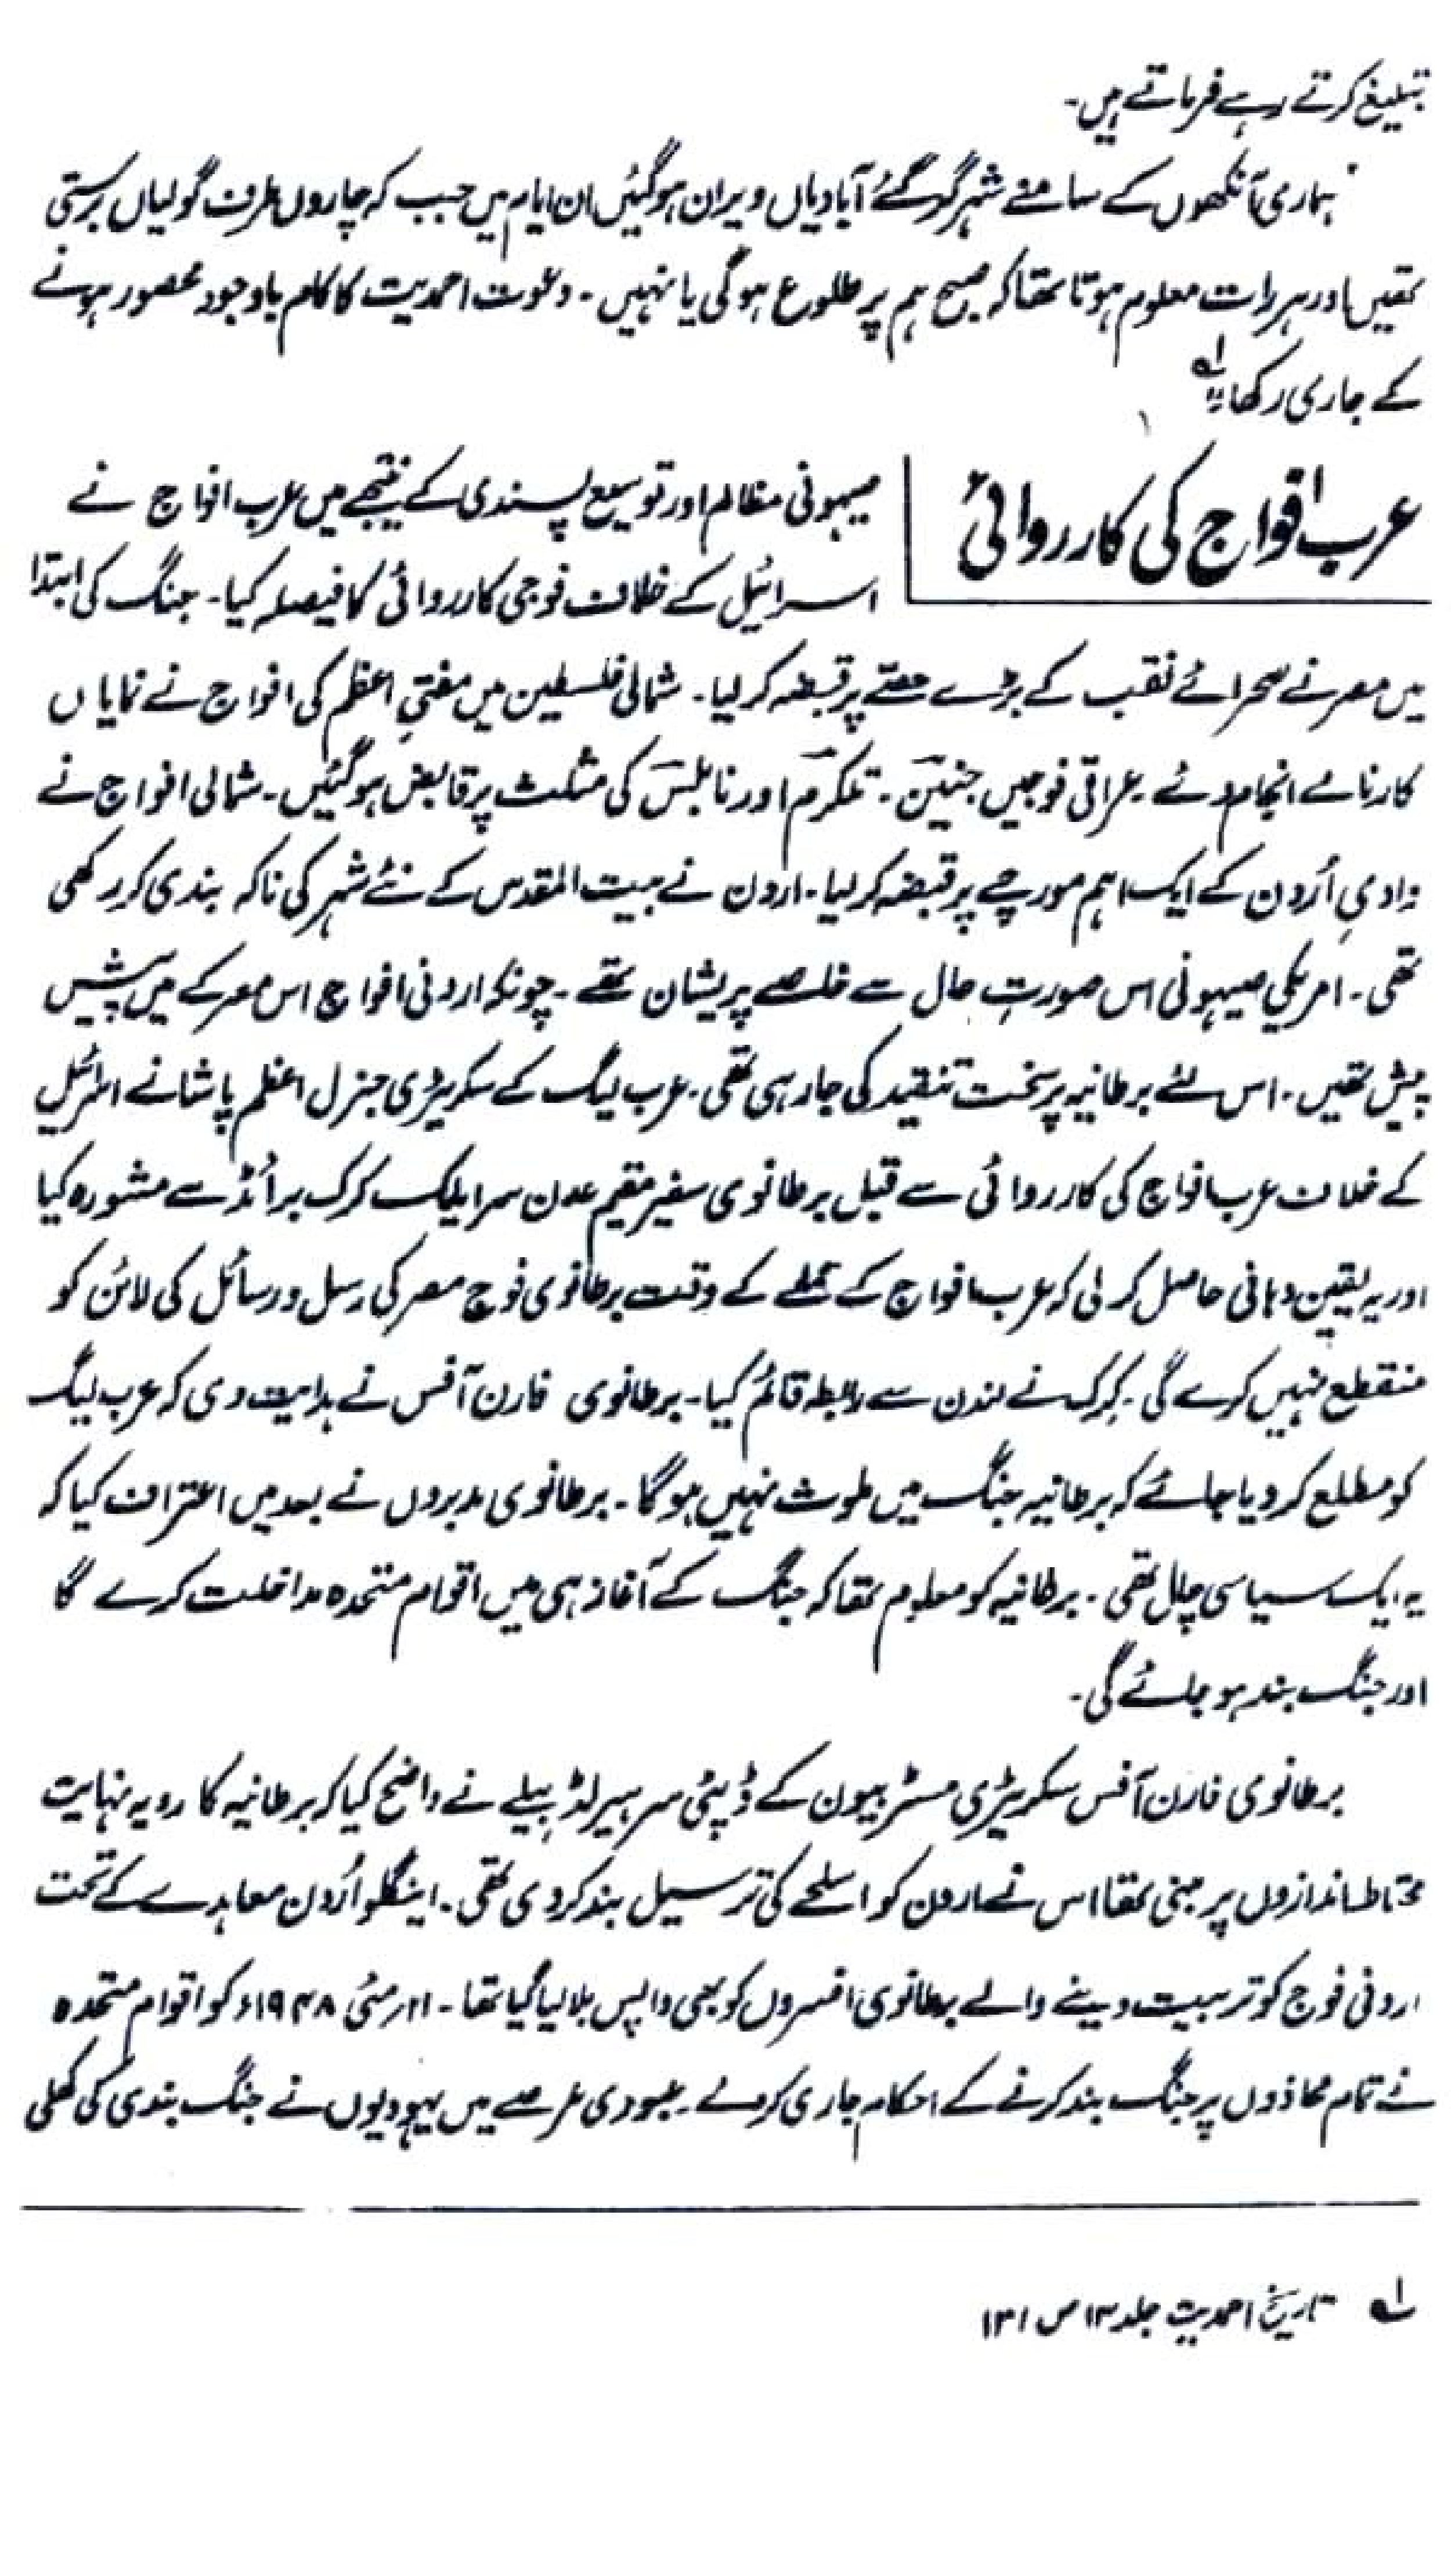 تبلیغ کرتے رہے فرماتے ہیں۔
"ہماری آنکھوں کے سامنے شہر گر گئے آبادیاں ویران ہو گئیں ان ایام میں جب کہ چاروں طرف گولیاں برستی
تھیں اور ہر رات معلوم ہوتا تھا کہ صبح ہم پر طلوع ہو گی یا نہیں۔ دعوت احمدیت کا کام باوجود محصور ہونے
کے جاری رکھا"۱؎
عرب افواج کی کارروائی
صیہونی مظالم اور توسیع پسندی کے نتیجے میں عرب افواج نے
اسرائیل کے خلاف فوجی کارروائی کا فیصلہ کیا۔ جنگ کی ابتدا
میں مصر نے صحرائے نقب کے بڑے حصّے پر قبضہ کر لیا۔ شمالی فلسطین میں مفتیِ اعظم کی افواج نے نمایاں
کارنامے انجام دئے۔ عراقی فوجیں جنین۔ تلکرم اور نابلس کی مثلث پر قابض ہو گئیں۔ شمالی افواج نے
وادیِ اُردن کے ایک اہم مورچے پر قبضہ کر لیا۔ اردن نے بیت المقدس کے نئے شہر کی ناکہ بندی کر رکھی
تھی۔ امریکی صیہونی اس صورتِ حال سے خاصے پریشان تھے۔ چونکہ اردنی افواج اس معرکے میں پیش
پیش تھیں۔ اس لئے برطانیہ پر سخت تنقید کی جا رہی تھی۔ عرب لیگ کے سکریٹری جنرل اعظم پاشا نے اسرائیل
کے خلاف عرب افواج کی کارروائی سے قبل برطانوی سفیر مقیم عدن سر ایلیک کرک برائڈ سے مشورہ کیا
اور یہ یقین دہانی حاصل کر لی کہ عرب افواج کے حملے کے وقت برطانوی فوج مصر کی رسل و رسائل کی لائن کو
منقطع نہیں کرے گی۔ کرک نے لندن سے رابطہ قائم کیا۔ برطانوی فارن آفس نے ہدایت دی کہ عرب لیگ
کو مطلع کر دیا جائے کہ برطانیہ جنگ میں ملوث نہیں ہو گا۔ برطانوی مدبروں نے بعد میں اعتراف کیا کہ
یہ ایک سیاسی چال تھی۔ برطانیہ کو معلوم تھا کہ جنگ کے آغاز ہی میں اقوام متحدہ مداخلت کرے گا
اور جنگ بند ہو جائے گی۔
برطانوی فارن آفس سکریٹری مسٹر بیون کے ڈپٹی سر ہیرلڈ بیلے نے واضح کیا کہ برطانیہ کا رویہ نہایت
محتاط اندازوں پر مبنی تھا اس نے اردن کو اسلحے کی ترسیل بند کر دی تھی۔ اینگلو اُردن معاہدے کے تحت
اردنی فوج کو تربیت دینے والے برطانوی افسروں کو بھی واپس بلا لیا گیا تھا۔ ۱۱ر مئی ۱۹۴۸ء کو اقوام متحدہ
نے تمام محاذوں پر جنگ بند کرنے کے احکام جاری کر دئے۔ عبوری عرصے میں یہودیوں نے جنگ بندی کی کھلی
۱؎ تاریخ احمدیت جلد ۱۳ ص ۱۳۱